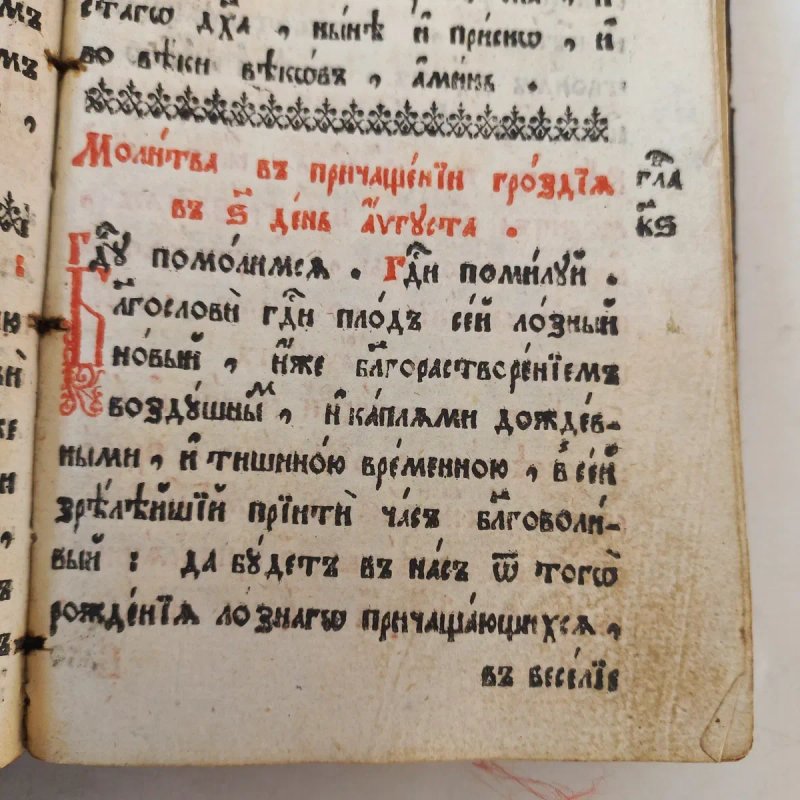 стагѡ дх҃а , ны́нѣ и҆ при́снѡ , и҆
во вѣ́ки вѣкѡ́въ , а҆ми́нь .
Моли́тва въ причаще́нїи гро́здїѧ
въ ѕ҃ де́нь а҆́ѵгꙋста .
гла в҃
к҃ѕ
Гдⷭ҇ꙋ помо́лимсѧ . Гдⷭ҇и поми́лꙋй .
Бл҃гословѝ гдⷭ҇и пло́дъ се́й ло́зный
но́вый , и҆́же бл҃горастворе́нїемъ
воздꙋ́шныⷨ , и҆ ка́плѧми дожде́в-
ными , и҆ тишино́ю вре́менною , в̾ се́й
зрѣлѣ́йшїй прїитѝ ча́съ бл҃говоли́-
вый : да бꙋ́детъ въ на́съ ѿ тогѡ̀
рожде́нїѧ ло́знагѡ причаща́ющихсѧ ,
въ весе́лїе